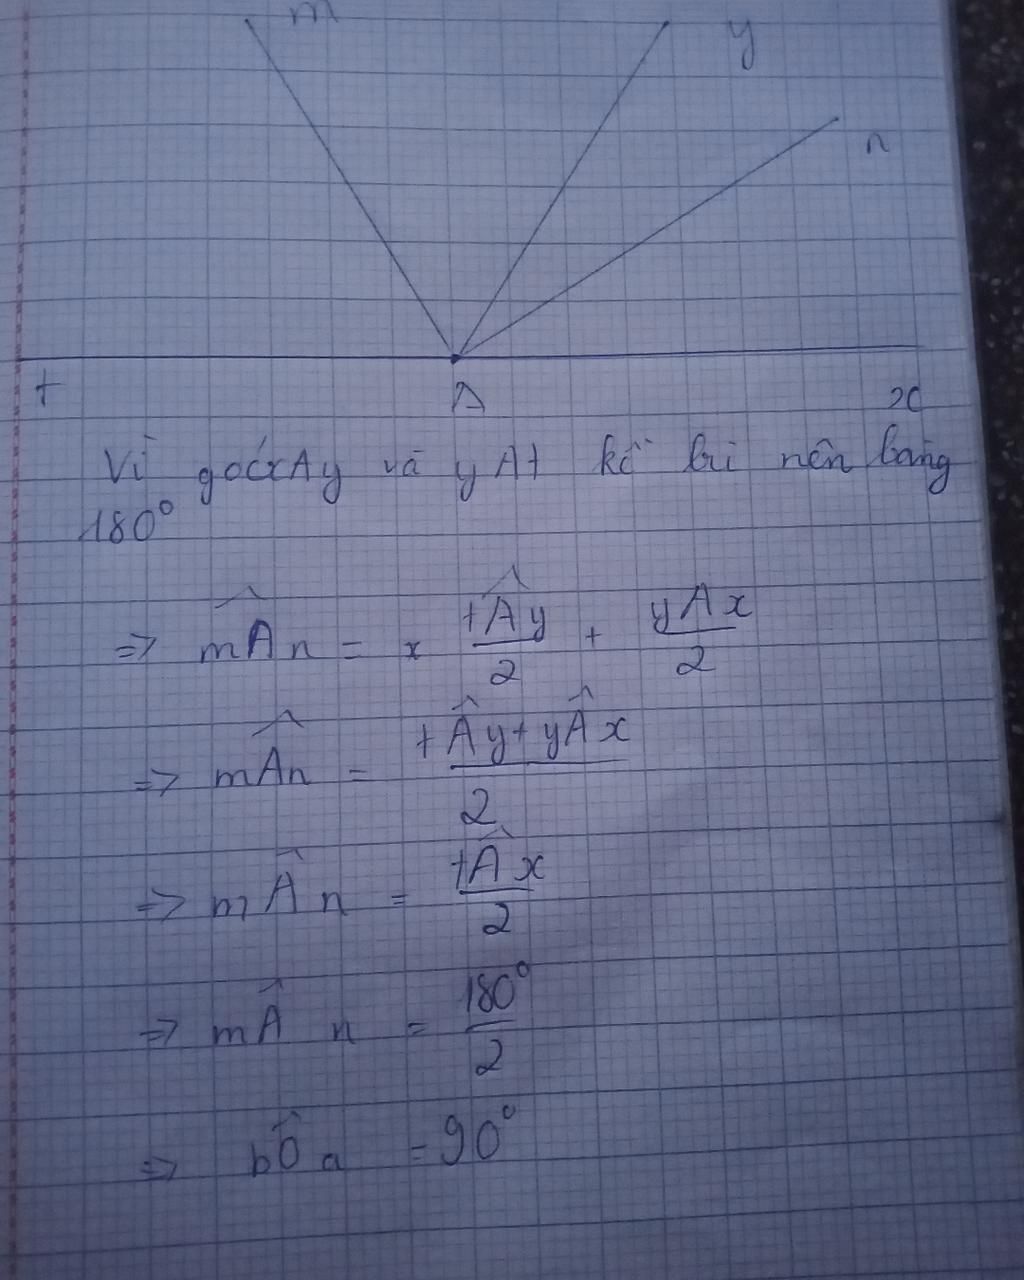 m y
n
t A x
Vì góc xAy và yAt kề bù nên bằng
180°
=> mÂn = x tÂy/2 + yAx/2
=> mÂn = tÂy + yÂx/2
=> mÂn = tÂx/2
=> mÂn = 180°/2
=> bÔa = 90°